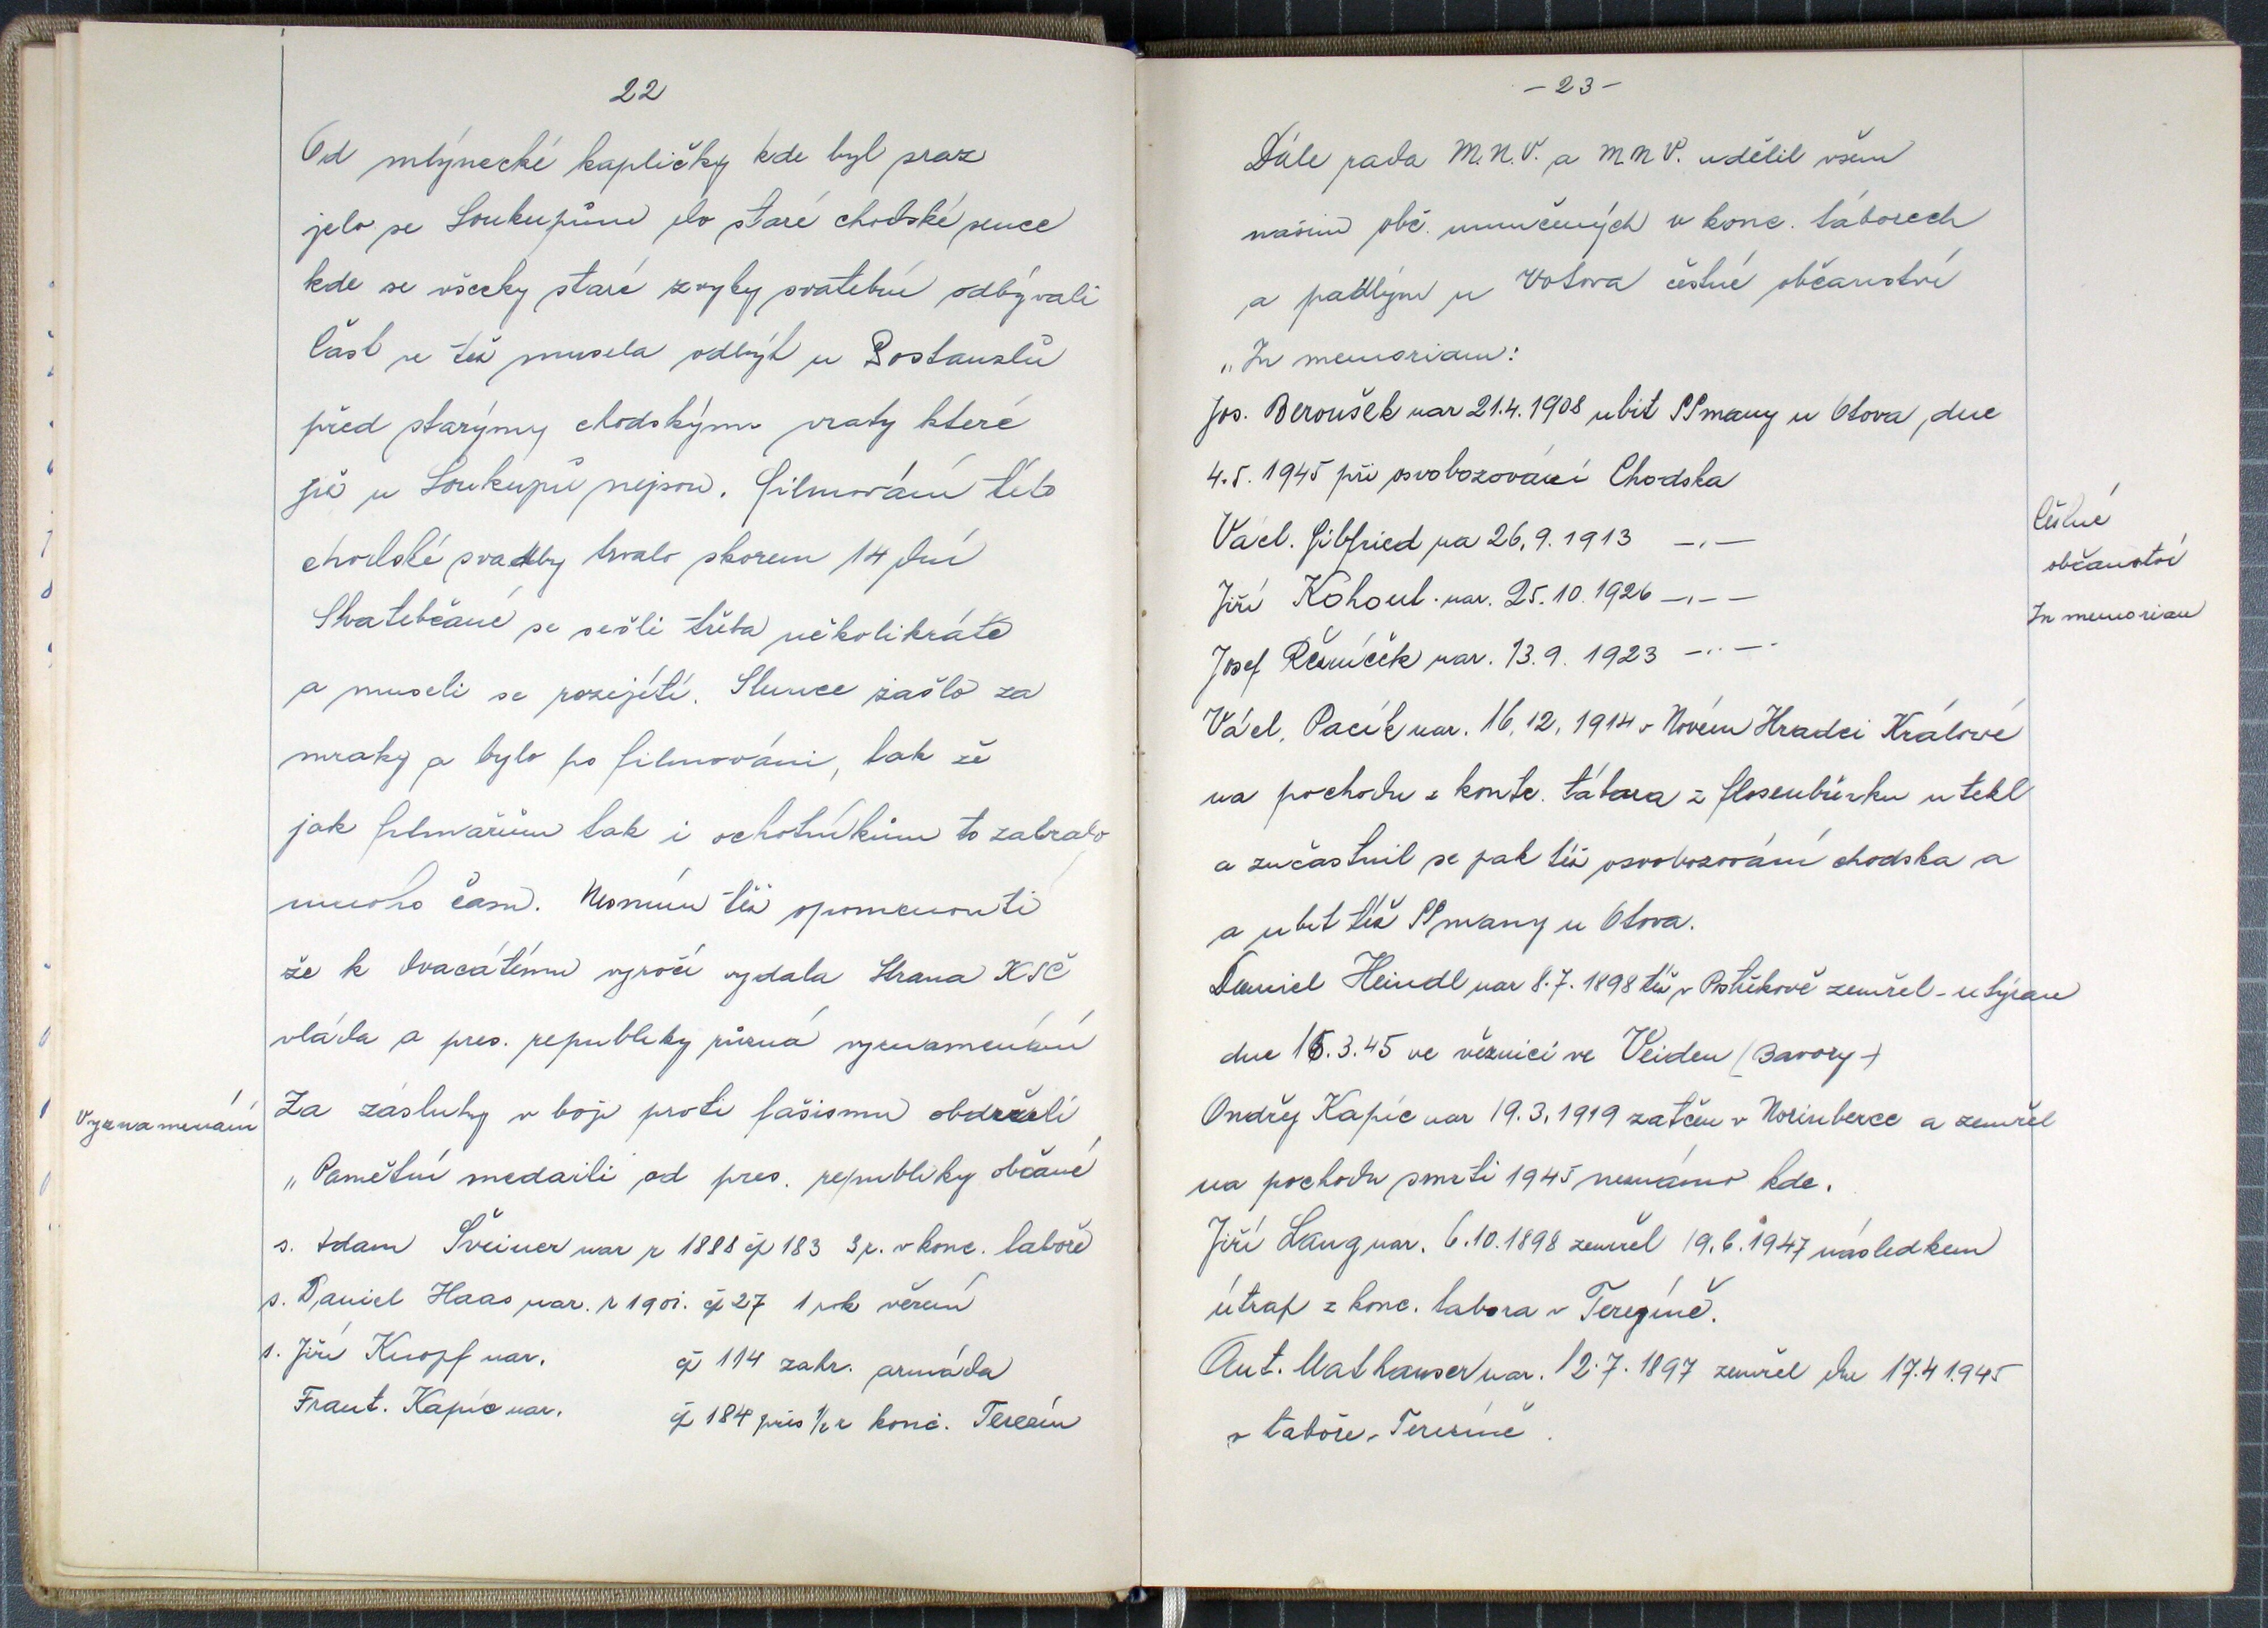 22
Od mlýnecké kapličky kde byl sraz
jelo se Soukupům do staré chodské sence
kde se všecky staré zvyky svatební odbývali
Část se též musela odbýt u Bostanzlů
před starými chodskými vraty které
již u Soukupů nejsou. Filmování této
chodské svadby trvalo skorem 14 dní
Svatebčané se sešli třeba několikráte
a museli se rozejíti. Slunce zašlo za
mraky a bylo po filmováni, tak že
jak filmařům tak i ochotníkům to zabralo
mnoho času. Nesmím též opomenouti
že k dvacátému vyročí vydala Strana KSČ
vláda a pres. republiky různá vyznamenání
Vyznamenání
Za zásluhy v boji proti fašismu obdrželi
„Pamětní medaili od pres. republiky občané
s. Adam Šveiner nar r 1888 čp 183 3 r. v konc. taboře
s. Daniel Haas nar. r 1901. čp 27 1 rok vězení
s. Jiří Knopf nar. čp 114 zahr. armáda
Frant. Kapic nar. čp 184 přes 1/2 r konc. Terezín
- 23 -
Dále rada M.N.V. a MNV. udělil všem
našim obč. umučených v konc. táborech
a padlým u Votova čestné občanství
„In memoriam:
Jos. Beroušek nar 21.4.1908 ubit SSmany u Otova, dne
4.5. 1945 při osvobozování Chodska
Václ. Gibfried na 26.9.1913 -„-
Jiří Kohout nar. 25.10.1926 -„-
Josef Řezníček nar. 13.9. 1923 -„-
Čestné
občanství
In memoriam
Václ. Pacík nar. 16.12.1914 v Novém Hradci Králové
na pochodu z kontc. tábora z Flosenbürku utekl
a zučastnil se pak též osvobozování chodska a
a ubit též SSmany u Otova.
Daniel Heindl nar 8.7.1898 též v Postřekově zemřel - utýran
dne 15.3.45 ve věznici ve Veiden (Bavory)
Ondřej Kapic nar 19.3.1919 zatčen v Norimberce a zemřel
na pochodu smrti 1945 neznámo kde.
Jiří Lang nar. 6.10.1898 zemřel 19.6.1947 následkem
útrap z konc. tabora v Terezíně.
Ant. Mathauser nar. 12.7.1897 zemřel dne 17.4 1945
v taboře v Terezíně.